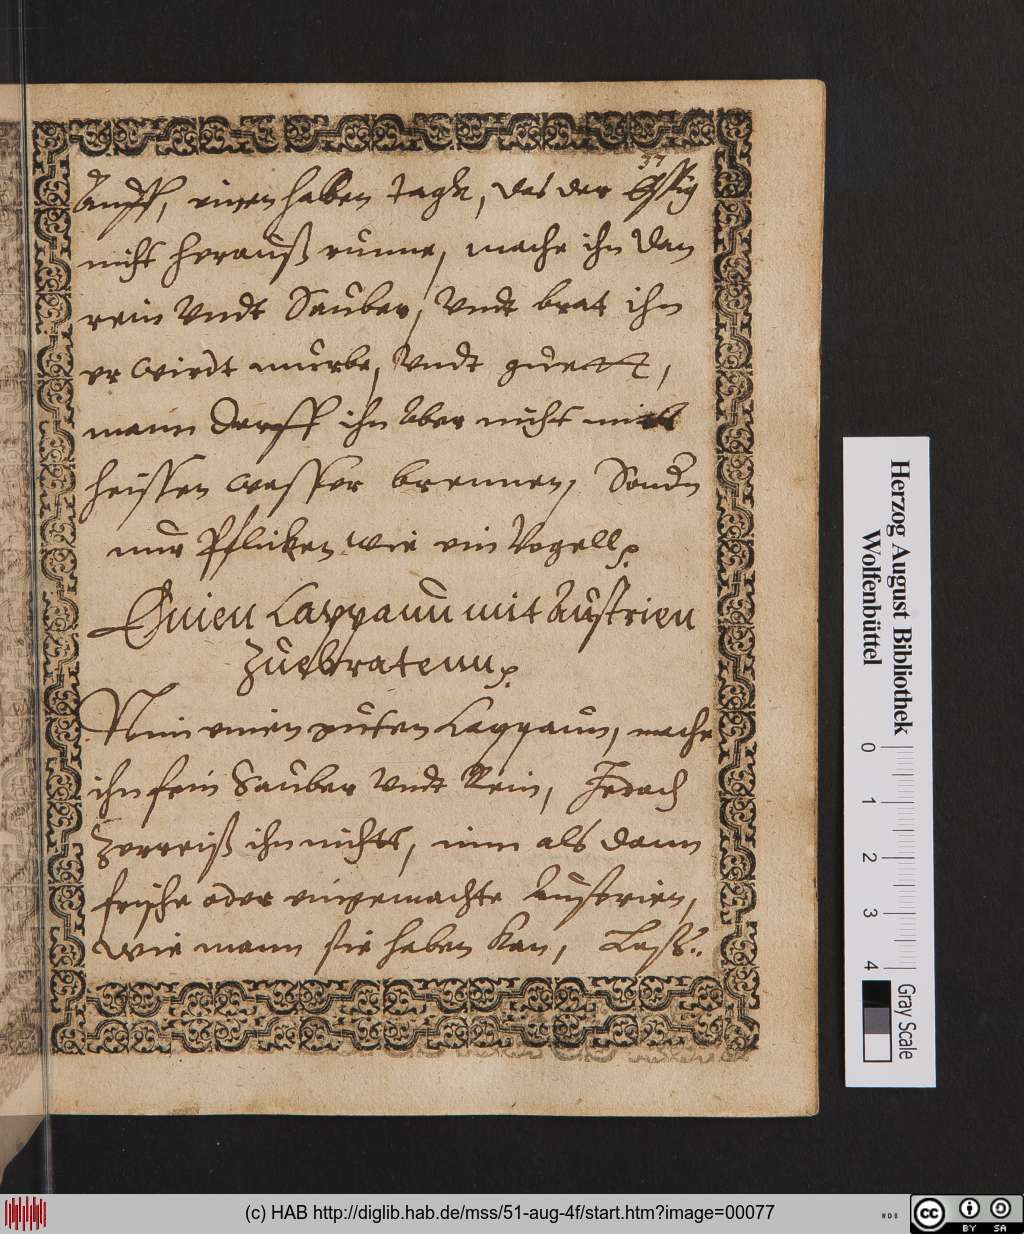 37
Auff, einen halben tagh, das der Essig
nicht herauß runne, mache ihn dan
rein Vndt Sauber, Vndt brat ihn
er wirdt murbe, Vndt guett,
mann darff ihn aber nicht mitt
heissen wasser brennen, Sondern
nur Pflicken wie ein Vogell.
Einen Cappaun mit Austrien
Zuebratenn.
Nim einen guten Cappaun, mache
ihn fein Sauber Vndt Rein, Jedoch
Zerreiß ihn nichts, nim als dann
frische oder eingemachte Austrien,
wie mann sie haben kan, Laß
Herzog August Bibliothek
Wolfenbüttel
0 1 2 3 4
Gray Scale
(c) HAB http://diglib.hab.de/mss/51-aug-4f/start.htm?image=00077
WDB
cc
BY SA